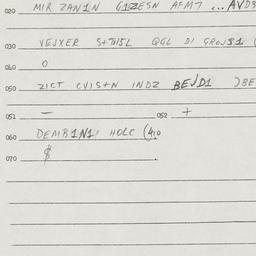 020 MIR ZAN1N G1ZESN AFM7 ... AVD3
030 VEJXER QGL DI GROJS1
040 O
050 ZICT CVIS+N INDZ BEJD1 JBE
051 — 052 +
060 DEMB1N1I HOLC (410
070 $